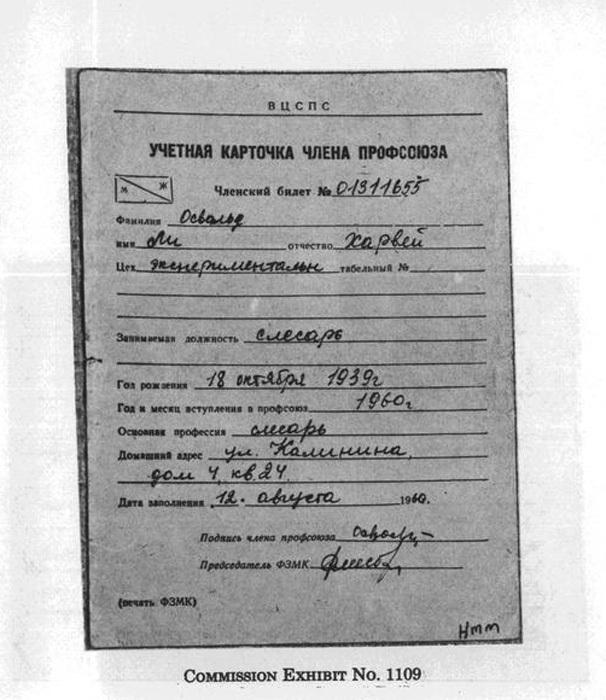 ВЦСПС
УЧЕТНАЯ КАРТОЧКА ЧЛЕНА ПРОФСОЮЗА
м ж Членский билет № 01311655
Фамилия Освальд
имя Ли отчество Харвей
Цех экспериментальн табельный №
Занимаемая должность слесарь
Год рождения 18 октября 1939г
Год и месяц вступления в профсоюз 1960г
Основная профессия слесарь
Домашний адрес ул. Калинина,
дом 4, кв. 24.
Дата заполнения 12. августа 1960.
Подпись члена профсоюза
Председатель ФЗМК
(печать ФЗМК)
Нтт
COMMISSION EXHIBIT NO. 1109